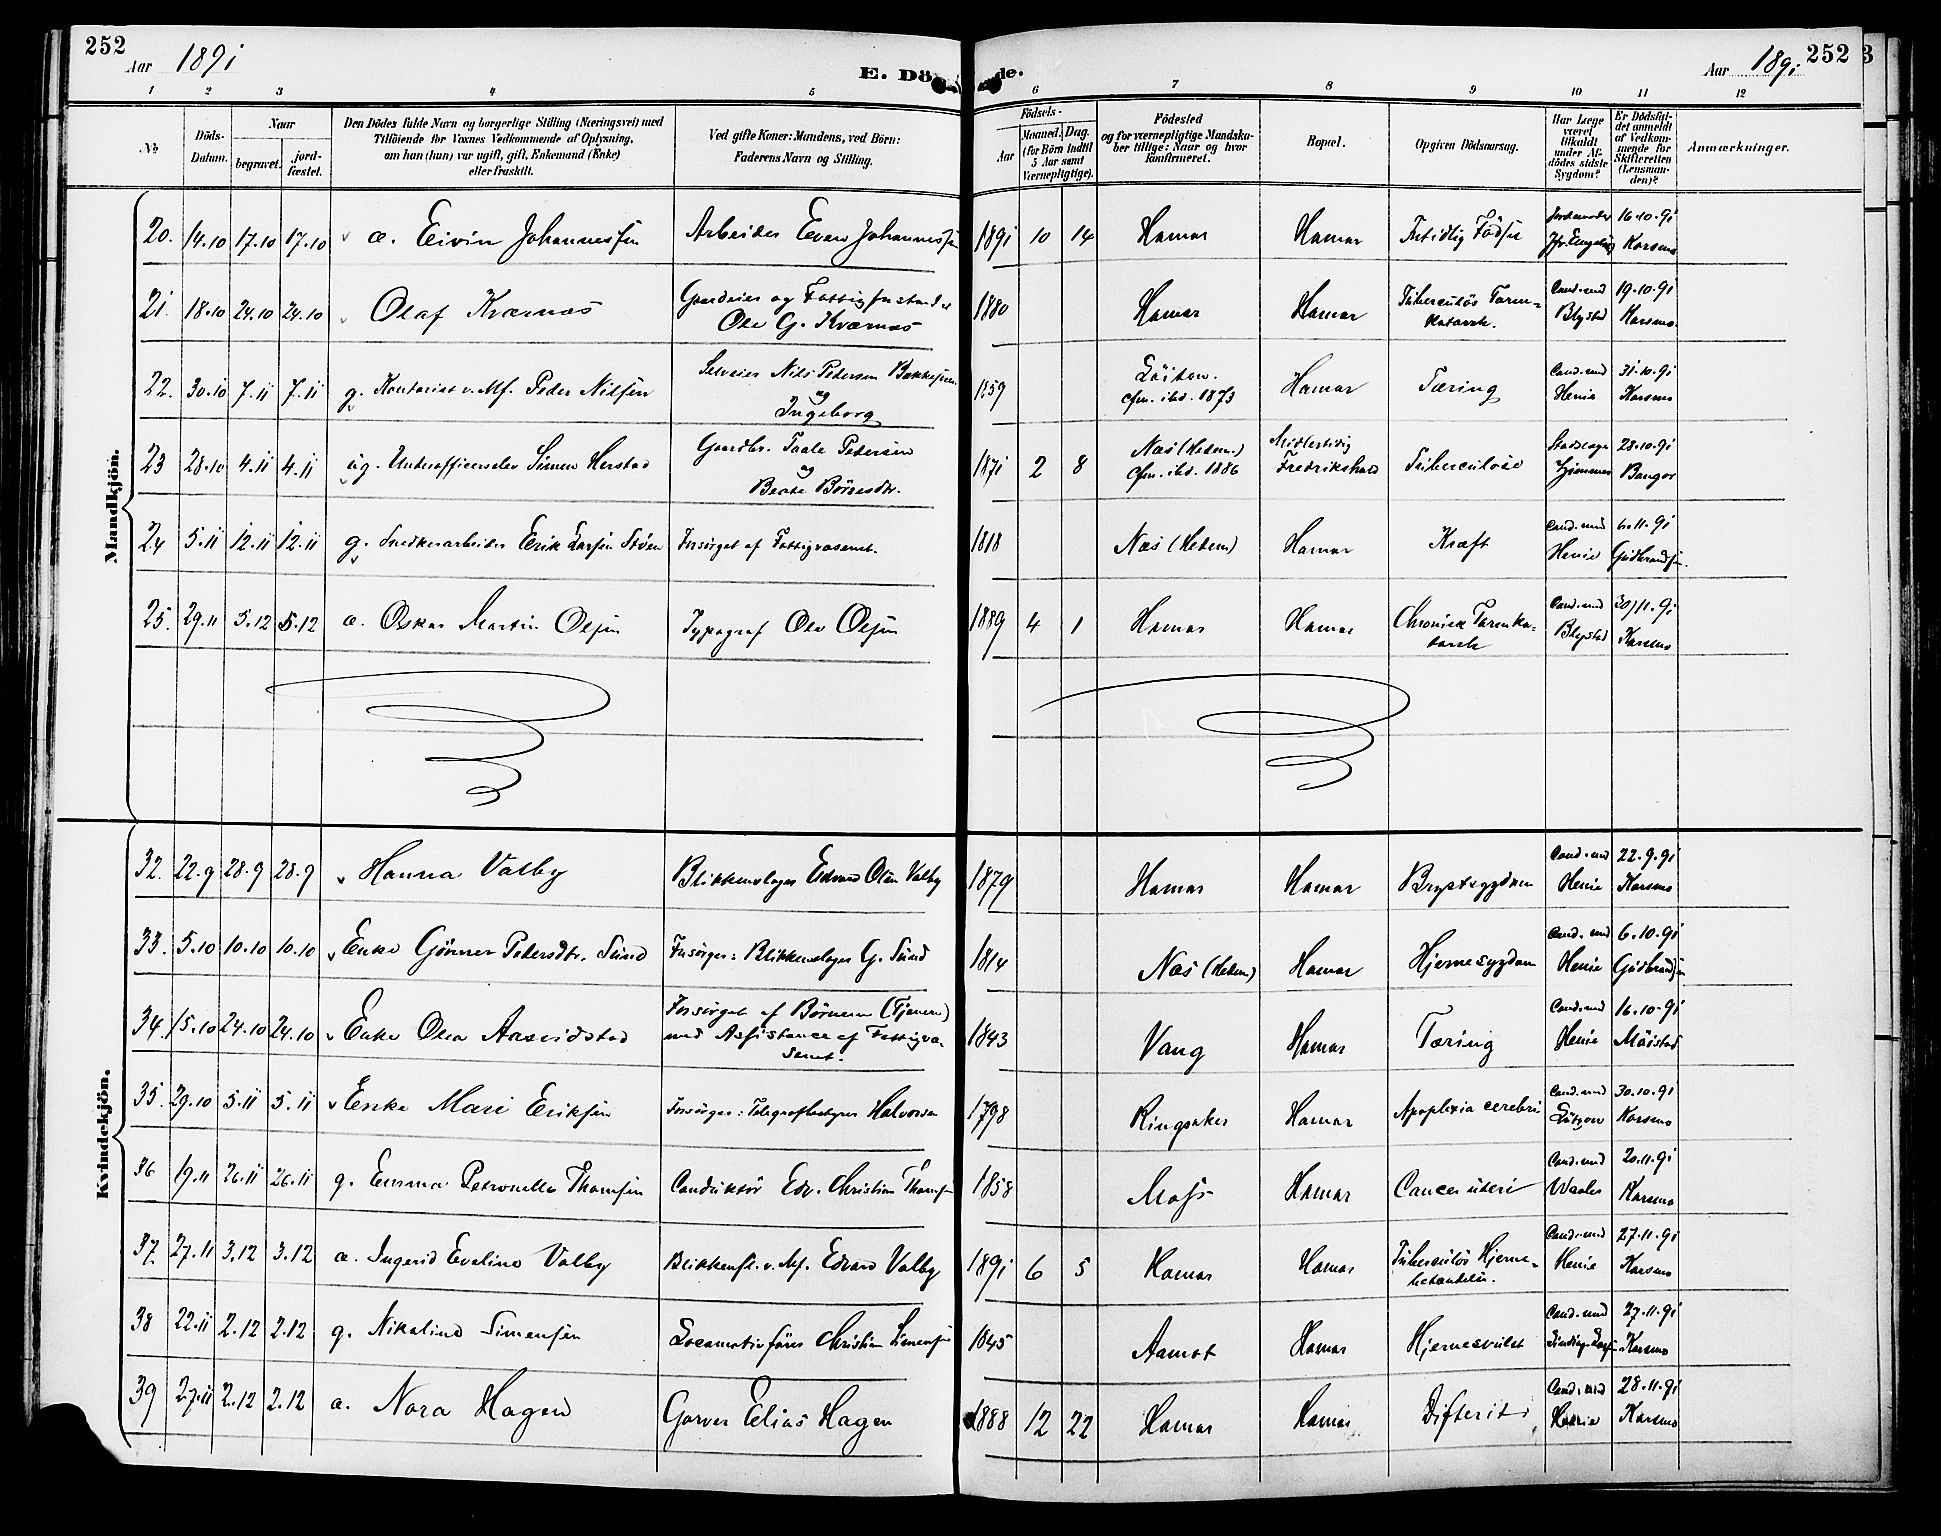 252
Aar 1891
E. Dö
de.
Aar 1891
252
3
1 2 3 4 5 6 7 8 9 10 11 12
No
Döds-Datum.
Naar
begravet.
jord-fæstet.
Den Dödes fulde Navn og borgerlige Stilling (Næringsvei) med
Tilföiende for Voxnes Vedkommende af Oplysning,
om han (hun) var ugift, gift, Enkemand (Enke)
eller fraskilt.
Ved gifte Koner: Mandens, ved Börn:
Faderens Navn og Stilling.
Födsels-
Aar
Maaned. Dag.
(for Börn indtil
5 Aar samt
Værnepligtige).
Födested
og for værnepligtige Mandska-
ber tillige: Naar og hvor
konfirmeret.
Bopæl.
Opgiven Dödsaarsag.
Har Læge
været
tilkaldt
under Af-
dödes sidste
Sygdom?
Er Dödsfal-
det anmeldt
af Vedkom-
mende for
Skifteretten
(Lensman-
den)?
Anmærkninger.
Mandkjön.
20. 14.10 17.10 17.10 a. Eivin Johannessen Arbeider Even Johannessen 1891 10 14 Hamar Hamar Fødsel Jordemoder 16-10-91 Karsmo
21. 18.10 24.10 24.10 Olaf Kværnæs Gaardeier og Ole G. Kværnæs 1880 Hamar Hamar Tuberculøs Tarm-katarrh. Cand. med Blystad 19-10-91 Karsmo
22. 30.10 7.11 7.11 g. Kontorist v. Mf. Peder Nilsen Selveier Nils Pedersen og Ingeborg 1859 Løiten. cfm. ibd. 1873 Hamar Tæring Cand. med Henie 31-10-91 Karsmo
23 28.10 4.11 4.11 ug. Underofficerselev Simen Herstad Gaardbr. Taale Pedersen og Beate Børresdtr. 1871 2 8 Næs (Hedem.) cfm. ibd. 1886 Midlertidig Fredrikshald Tuberculose Stadslæge 28-10-91 Bangor
24 5.11 12.11 12.11 g. Snedkerarbeider Erik Larsen Støen Forsørget af Fattigvæsenet. 1818 Næs (Hedem) Hamar Kræft Cand. med Henie 6-11-91 Gudbrandsen.
25. 29.11 5.12 5.12 a. Oskar Martin Olsen Typograf Ole Olsen 1889 4 1 Hamar Hamar Chronisk Tarmka-tarrh Cand. med Blystad 30/11-91 Karsmo
Kvindekjön.
32. 22.9 28.9 28.9 Hanna Valby Blikkenslager Edvard Olsen Valby 1879 Hamar Hamar Brystsygdom Cand. med Henie 22-9-91 Karsmo
33. 5.10 10.10 10.10 Enke Gønner Pedersdtr. Sund Forsørger: Blikkenslager G. Sund 1814 Næs (Hedem) Hamar Hjernesygdom Cand. med Henie 6-10-91 Gudbrandsen
34. 15.10 24.10 24.10 Enke Olea Aasvidstad Forsørget af Børnene (Tjenere) med Assistance af Fattigvæ-senet. 1843 Vang Hamar Tæring Cand. med Henie 16-10-91 Møistad
35. 29.10 5.11 5.11 Enke Mari Eriksen Forsørger: Telegrafbestyrer Halvorsen 1798 Ringsaker Hamar Apoplexia cerebri Cand. med Lützow 30-10-91 Karsmo
36 19.11 26.11 26.11 g. Emma Petronelle Thomsen Conduktør Edv. Christian Thomsen 1858 Moss Hamar Cancer uteri Cand. med Waaler 20-11-91 Karsmo
37. 27.11 3.12 3.12 a. Ingerid Eveline Valby Blikkensl. v. Mf. Edvard Valby 1891 6 5 Hamar Hamar Tuberculøs Hjerne- Cand. med Henie 27-11-91 Karsmo
38 22.11 2.12 2.12 g. Nikoline Simensen Locomotivfører Christian Simensen 1845 Aamot Hamar Hjernesvulst Cand. med 27-11-91 Karsmo
39 27.11 2.12 2.12 a. Nora Hagen Garver Elias Hagen 1888 12 22 Hamar Hamar Difterit Cand. med Henie 28-11-91 Karsmo